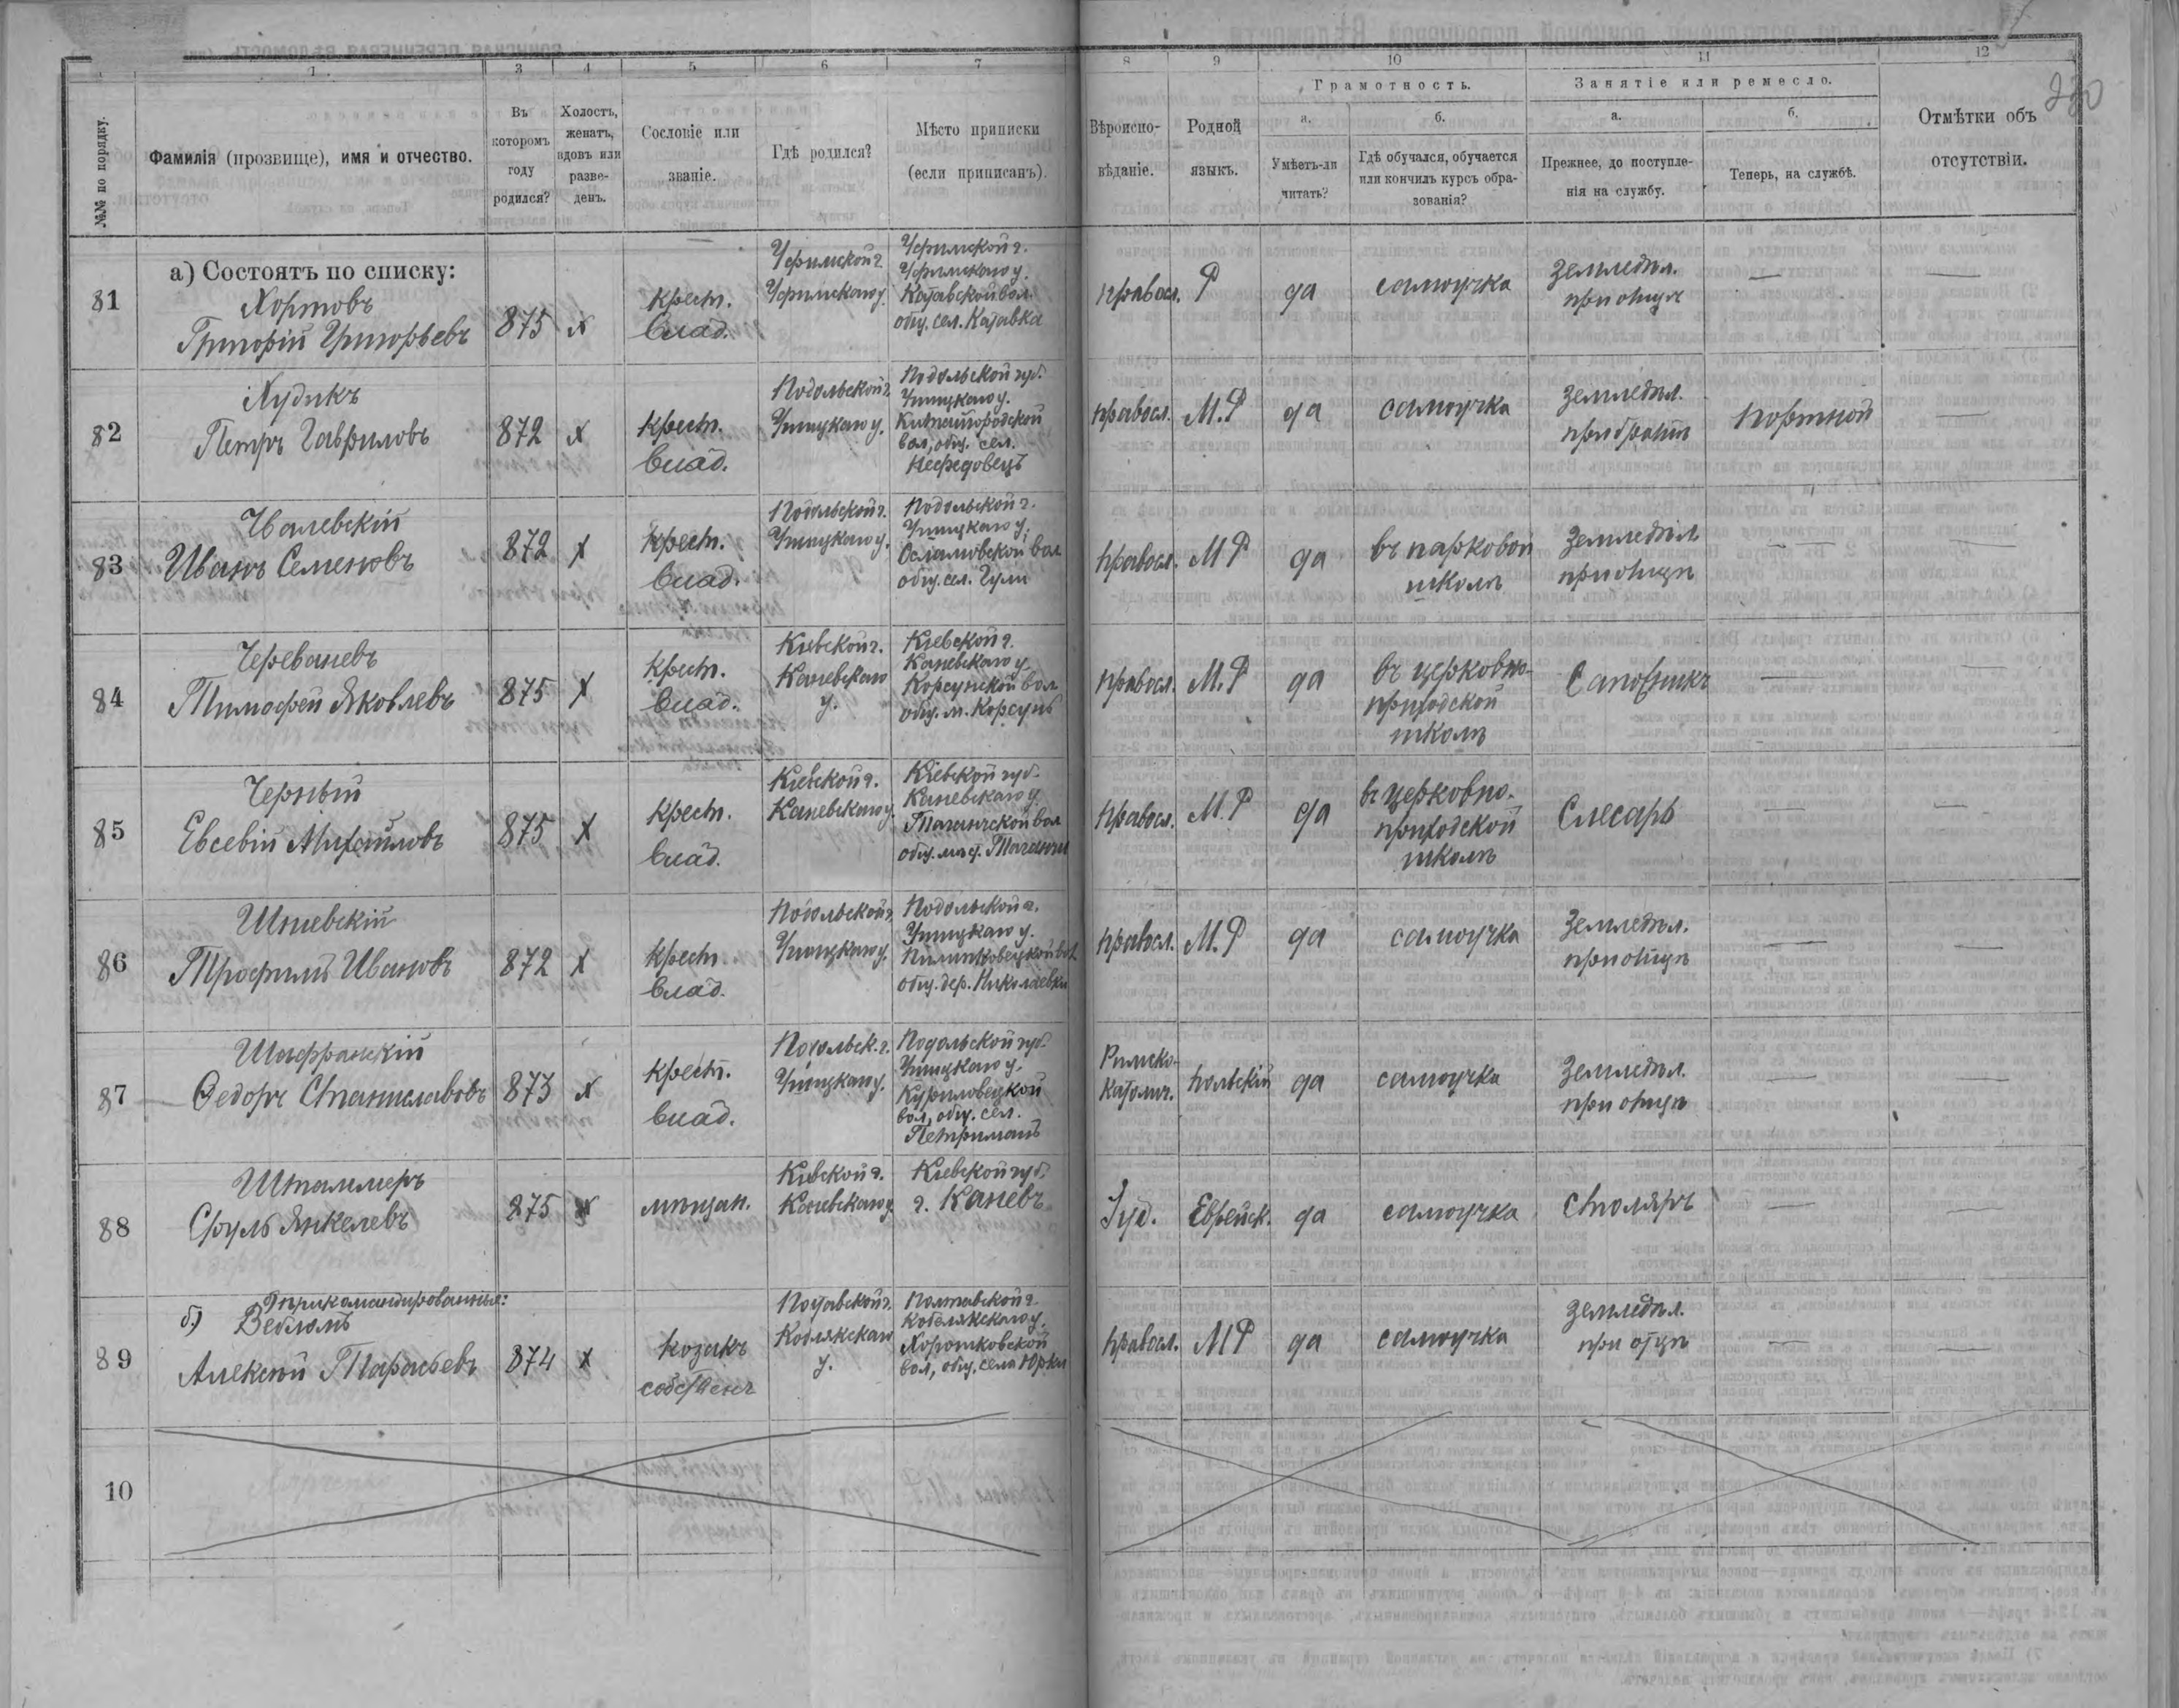 1 2 3 4 5 6 7 8 9 10 11 12
280
№№ по порядку.
Фамилія (прозвище), имя и отчество.
Въ
которомъ
году
родился?
Холостъ,
женатъ,
вдовъ или
разве-
денъ.
Сословіе или
званіе.
Гдѣ родился?
Мѣсто приписки
(если приписанъ).
Вѣроиспо-
вѣданіе.
Родной
языкъ.
Грамотность.
а.
Умѣетъ-ли
читать?
б.
Гдѣ обучался, обучается
или кончилъ курсъ обра-
зованія?
Занятіе или ремесло.
а.
Прежнее, до поступле-
нія на службу.
б.
Теперь, на службѣ.
Отмѣтки объ
отсутствіи.
а) Состоятъ по списку:
81
Хортовъ
Григорій Григорьевъ
875
х
крест.
влад.
Уфимской г.
Уфимскаго у.
Уфимской г.
Уфимскаго у.
Катавской вол.
общ. сел. Катавка
правосл.
Р
да
самоучка
Земледѣл.
при отцѣ
—
—
82
Худикъ
Петръ Гавриловъ
872
х
крест.
влад.
Подольской г.
Ушицкаго у.
Подольской губ.
Ушицкаго у.
Китайгородской
вол, общ. сел.
Нефедовецъ
правосл.
М.Р
да
самоучка
Земледѣл.
при братѣ
портной
—
83
Чалевскій
Иванъ Семеновъ
872
х
крест.
влад.
Подольской г.
Ушицкаго у.
Подольской г.
Ушицкаго у.
Осламовской вол
общ. сел. Гули
правосл.
М Р
да
въ парковой
школѣ
Земледѣл
при отцѣ
—
—
84
Череваневъ
Тимофей Яковлевъ
875
х
крест.
влад.
Кіевской г.
Каневскаго
у.
Кіевской г.
Каневскаго у.
Корсунской вол
общ. м. Корсунь
правосл.
М.Р
да
въ церковно-
приходской
школѣ
Сапожникъ
—
—
85
Черный
Евсевій Михайловъ
875
х
крест.
влад.
Кіевской г.
Каневскаго у.
Кіевской губ.
Каневскаго у.
Таганчской вол
общ. мѣст. Таганчи
правосл.
М.Р
да
въ церковно-
приходской
школѣ
Слесарь
—
—
86
Шпиевскій
Трофимъ Ивановъ
872
х
крест
влад.
Подольской г.
Ушицкаго у.
Подольской г.
Ушицкаго у.
общ. дер. Николаевки
правосл.
М.Р
да
самоучка
Земледѣл.
при отцѣ
—
—
87
Шафранскій
Ѳедоръ Станиславовъ
873
х
крест.
влад.
Подольск. г.
Ушицкаго у.
Подольской губ.
Ушицкаго у.
Куриловецкой
вол, общ. сел.
Петриманъ
Римско-
Католич.
польскій
да
самоучка
Земледѣл.
при отцѣ
—
—
88
Штаммеръ
Сруль Янкелевъ
875
х
мѣщан.
Кіевской г.
Каневскаго у.
Кіевской губ.
г. Каневъ
Іуд.
Еврейск.
да
самоучка
столяръ
—
—
б) Прикомандированные:
89
Алексѣй Тарасьевъ
874
х
козакъ
собствен
Полтавской г.
Кобелякскаго
у.
Полтавской г.
Кобелякскаго у.
Хорошковской
вол, общ. села Юрки
правосл.
МР
да
самоучка
Земледѣл.
при отцѣ
—
—
10